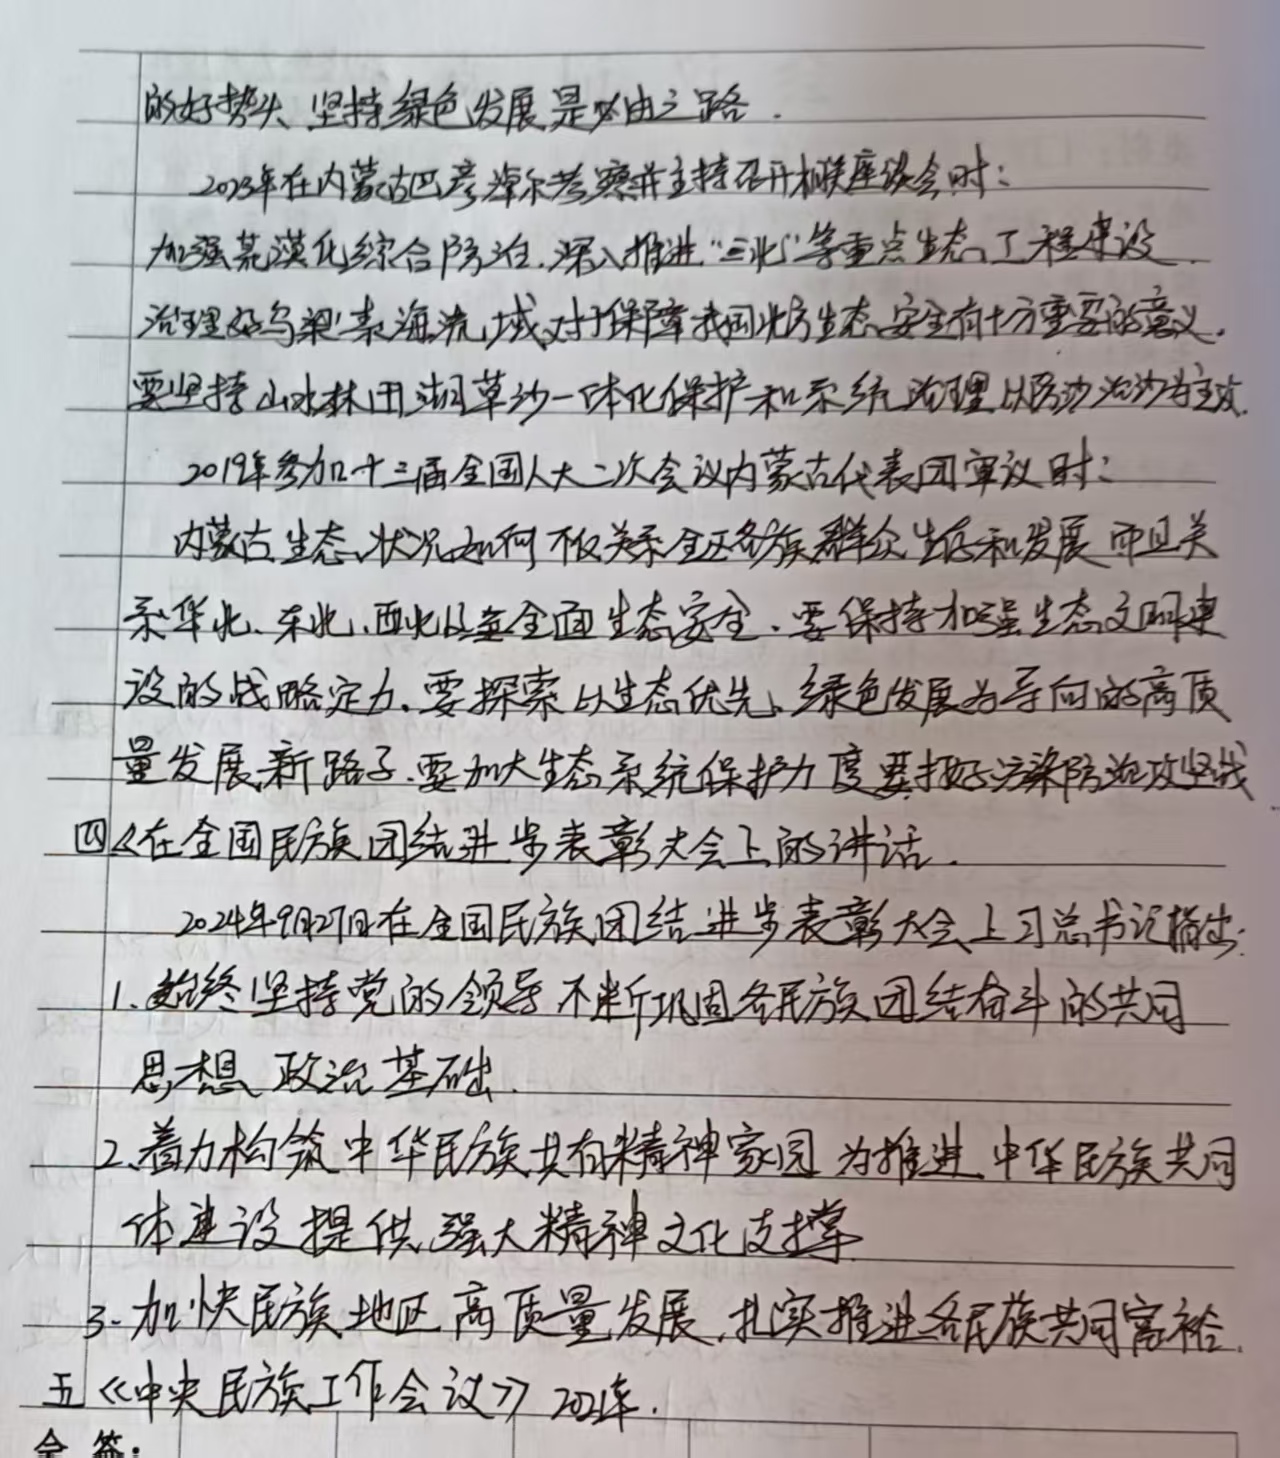 的好势头、坚持绿色发展是必由之路.
2023年在内蒙古巴彦淖尔考察并主持召开相关座谈会时：
加强荒漠化综合防治.深入推进“三北”等重点生态工程建设.
治理好乌梁素海流域对于保障我国北方生态安全有十方重要的意义.
要坚持山水林田湖草沙一体化保护和系统治理以防沙治沙为主攻.
2019年参加十三届全国人大二次会议内蒙古代表团审议时：
内蒙古生态状况如何不仅关系全区各族群众生存和发展而且关
系华北、东北、西北以至全面生态安全.要保持加强生态文明建
设的战略定力.要探索以生态优先、绿色发展为导向的高质
量发展新路子.要加大生态系统保护力度要打好污染防治攻坚战
四《在全国民族团结进步表彰大会上的讲话.
2024年9月27日在全国民族团结进步表彰大会上习总书记指出：
1.始终坚持党的领导不断巩固各民族团结奋斗的共同
思想政治基础.
2.着力构筑中华民族共有精神家园为推进中华民族共同
体建设提供强大精神文化支撑
3.加快民族地区高质量发展.扎实推进各民族共同富裕.
五《中央民族工作会议》2021年.